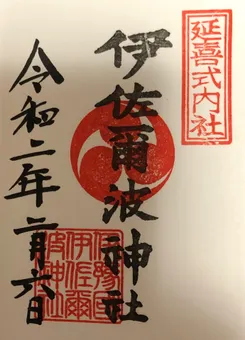 延喜式内社
伊佐爾波神社
伊豫国
伊佐爾
波神社
令和二年二月六日